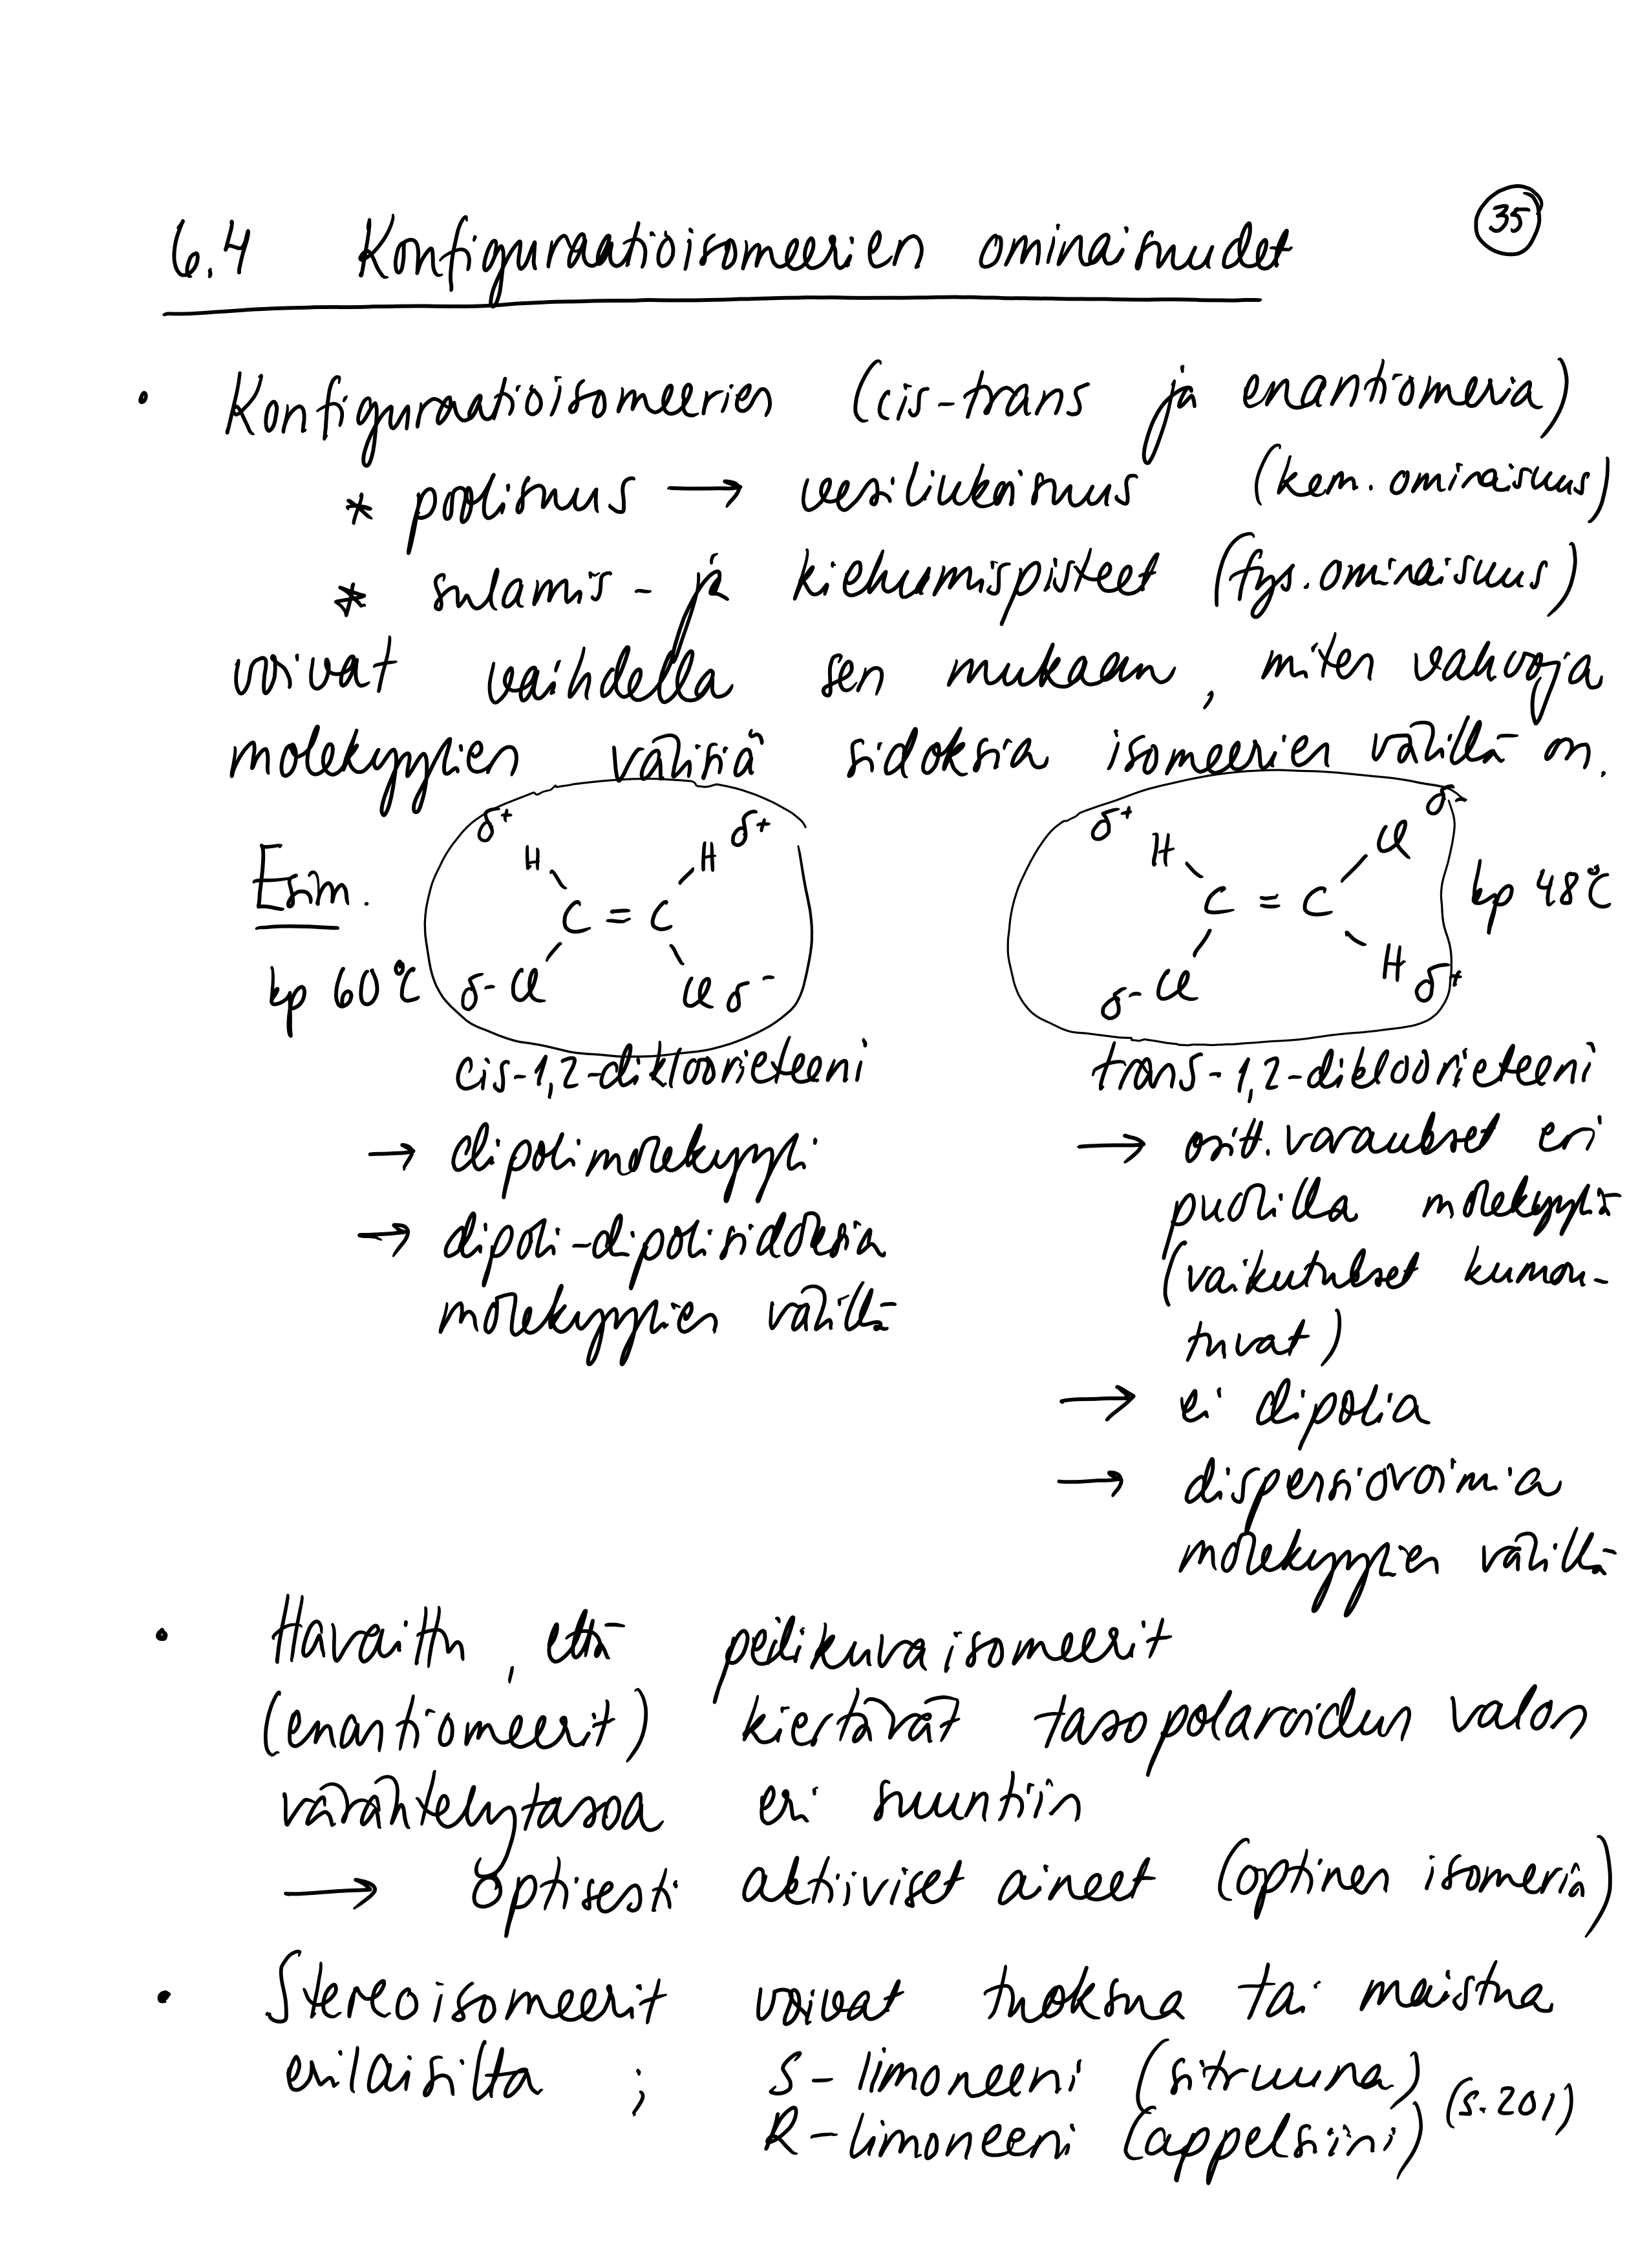 35
6.4 Konfiguraatioisomeerien ominaisuudet
• Konfiguraatioisomeerien (cis-trans ja enantiomeria)
* poolisuus → vesiliukoisuus (kem. ominaisuus)
* sulamis- ja kiehumispisteet (fys. ominaisuus)
voivat vaihdella sen mukaan, miten vahvoja
molekyylien välisiä sidoksia isomeerien välillä on.
Esim.
kp 60°C
δ+ H H δ+
C = C
δ- Cl Cl δ-
cis-1,2-dikloorieteeni
→ dipolimolekyyli
→ dipoli-dipolisidoksia
molekyylien välillä
δ+ H Cl δ-
C = C
δ- Cl H δ+
kp 48°C
trans-1,2-dikloorieteeni
→ ositt. varaukset eri
puolilla molekyyliä
(vaikutukset kumou-
tuvat)
→ ei dipolia
→ dispersiovoimia
molekyylien välillä
• Havaittu, että peilikuvaisomeerit
(enantiomeerit) kiertävät tasopolaroidun valon
värähtelytasoa eri suuntiin
→ Optisesti aktiiviset aineet (optinen isomeria)
• Stereoisomeerit voivat tuoksua tai maistua
erilaisilta ; S-limoneeni (sitruuna)
R-limoneeni (appelsiini) (s. 201)